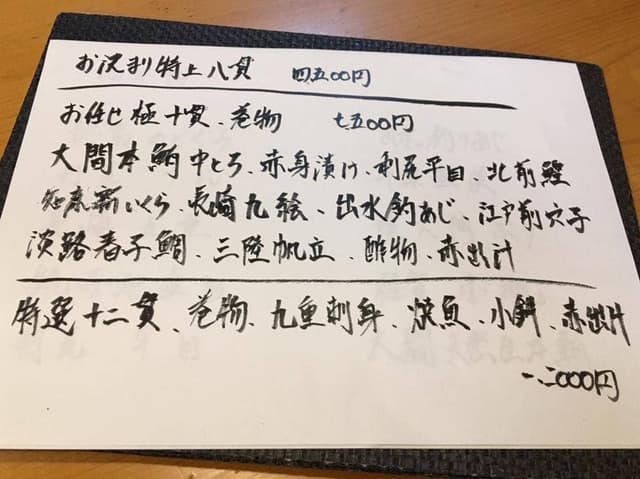 お決まり特上八貫 四五00円
お任せ極十貫、巻物 七五00円
大間本鮪中とろ、赤身漬け、利尻平目、北前鰹
知床新いくら、長崎九絵、出水釣あじ、江戸前穴子
淡路春子鯛、三陸帆立、酢物、赤出汁
特選十二貫、巻物、九重刺身、焼魚、小餅、赤出汁
一二000円